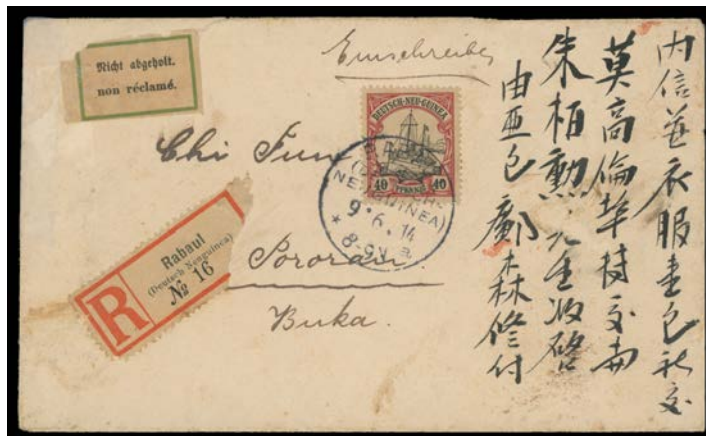 Nicht abgeholt.
non réclamé.
Einschreiben
DEUTSCH-NEU-GUINEA
40 PFENNIG 40
NEUGUINEA)
9.6.14
8-9V
Chi Fun
Rabaul
(Deutsch Neuguinea)
№ 16
R
Pororan
Buka.
內信並衣服壹包祈交
莫高倫埠村交甫
朱栢勲兄生收啓
由亞包鄺森修付